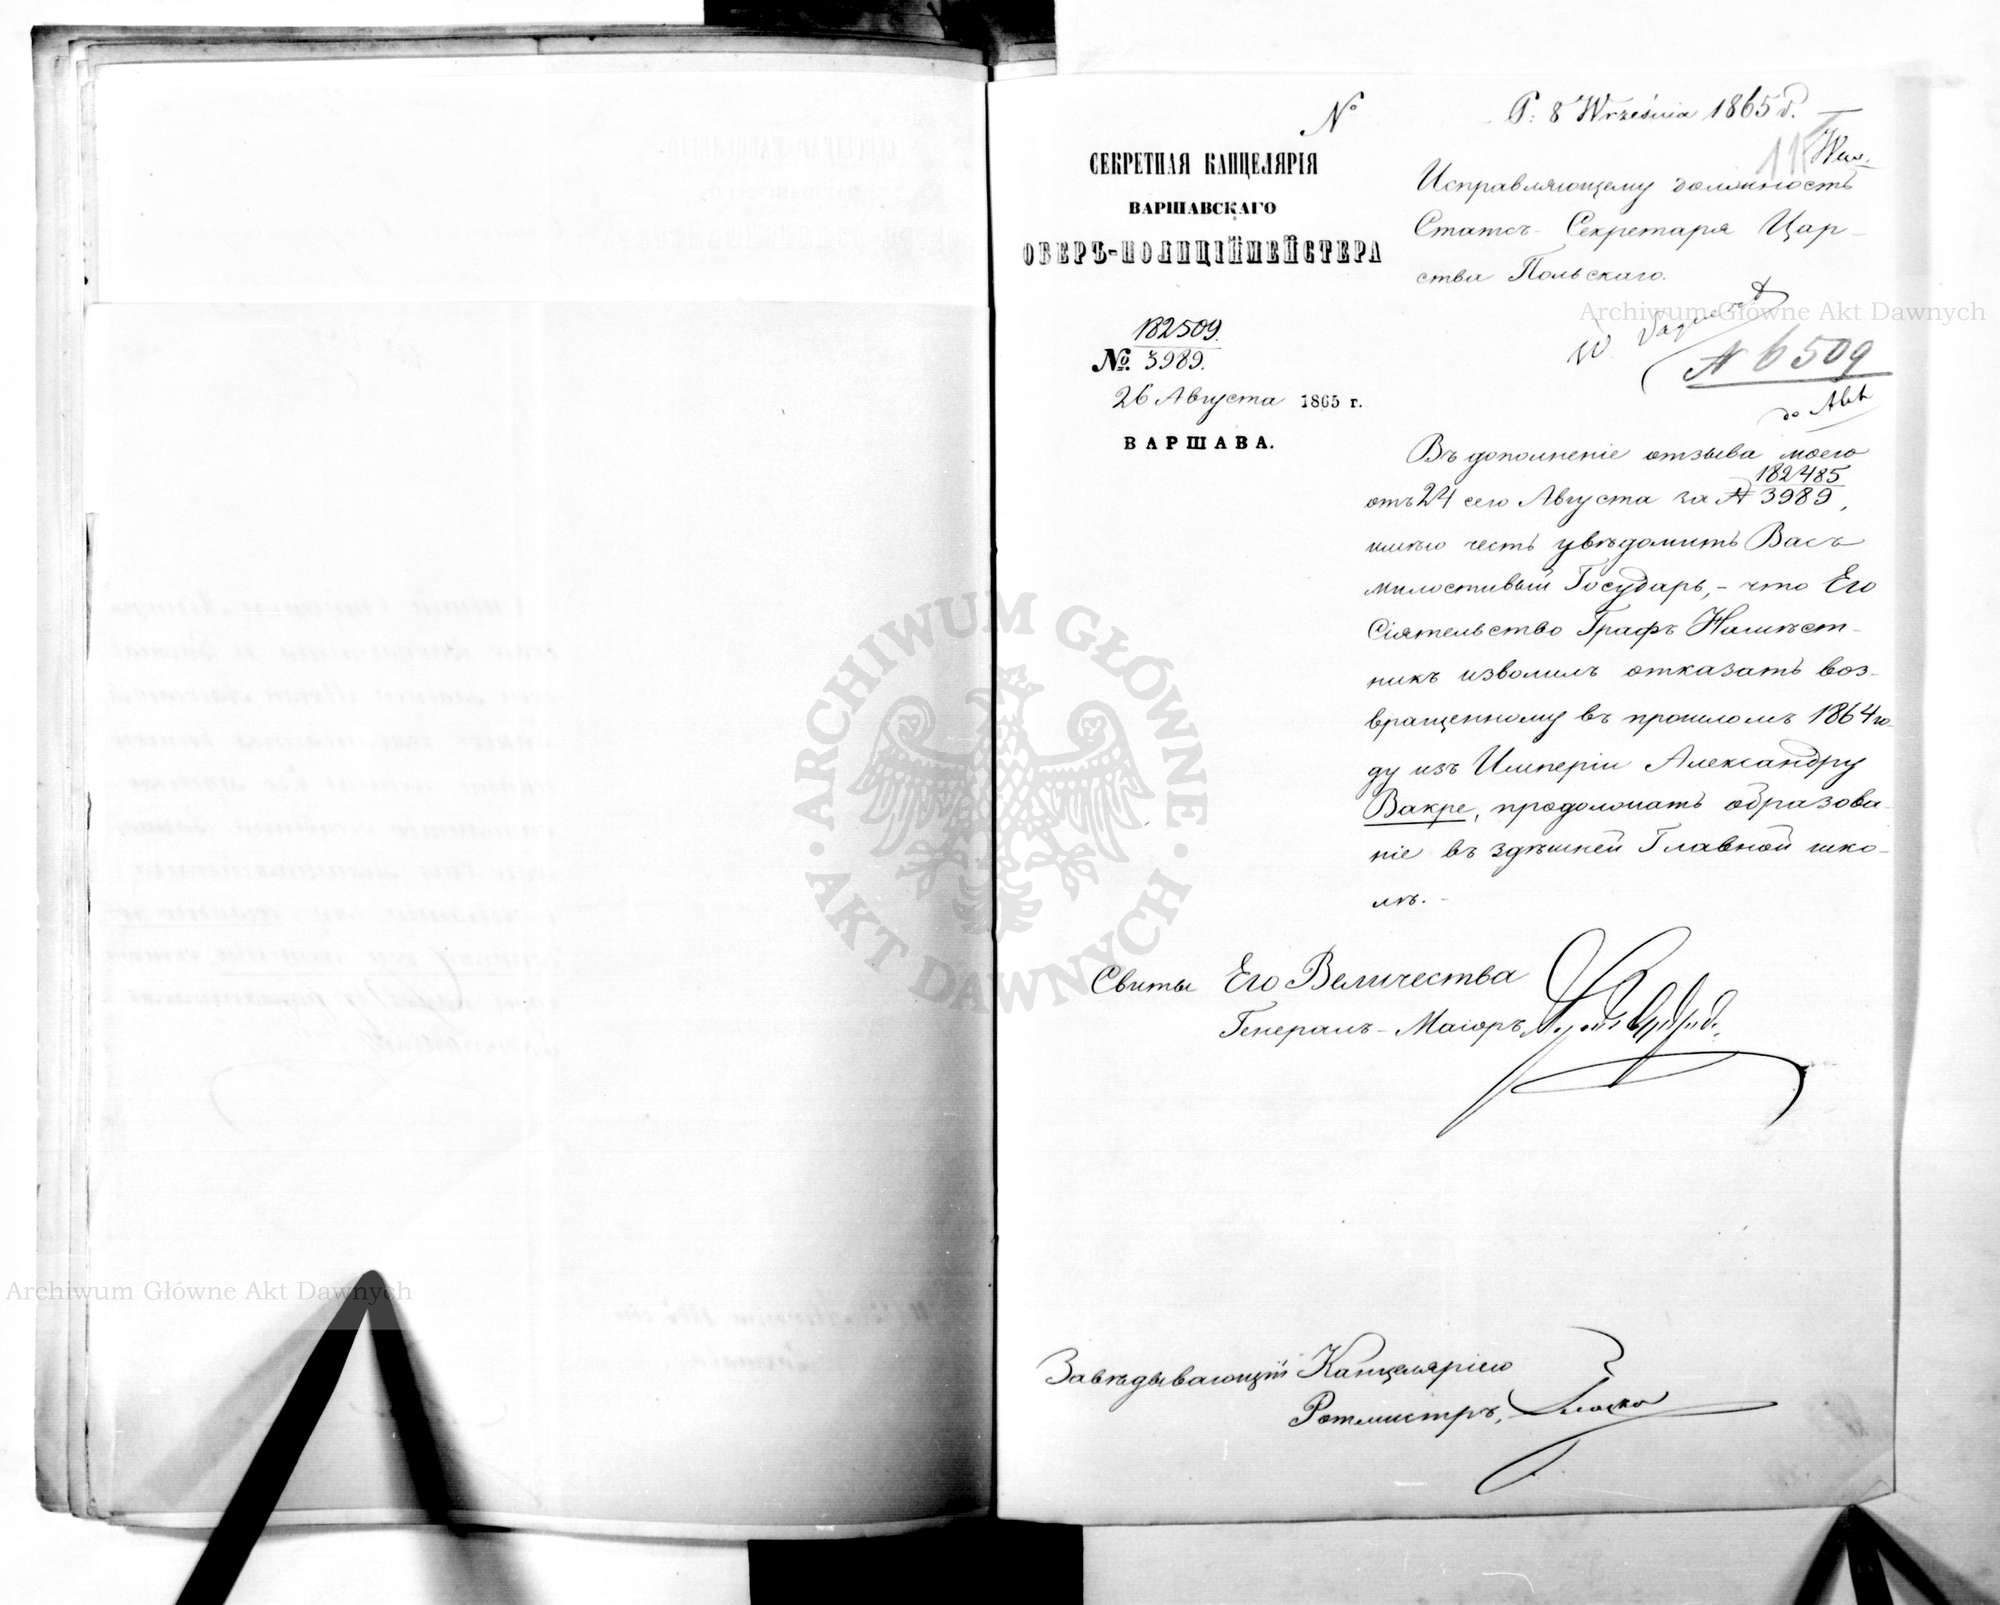 №
P: 8 Września 1865 r.
СЕКРЕТНАЯ КАНЦЕЛЯРІЯ
ВАРШАВСКАГО
ОБЕРЪ-ПОЛИЦІЙМЕЙСТЕРА
182509.
№. 3989.
26 Августа 1865 г.
ВАРШАВА.
Исправляющему должность
Статсъ-Секретаря Цар-
ства Польскаго.
N 6509
до Авт
Въ дополненіе отзыва моего
отъ 24 сего Августа за N 182485/3989,
имѣю честь увѣдомить Васъ
милостивый Государь, - что Его
Сіятельство Графъ Намѣст-
никъ изволилъ отказать воз-
вращенному въ прошломъ 1864 го-
ду изъ Имперіи Александру
Вакре, продолжать образова-
ніе въ здѣшней Главной шко-
лѣ. -
Свиты Его Величества
Генералъ-Маіоръ
Завѣдывающій Канцеляріею
Ротмистръ,
Archiwum Główne Akt Dawnych
ARCHIWUM GŁÓWNE · AKT DAWNYCH ·
Archiwum Główne Akt Dawnych